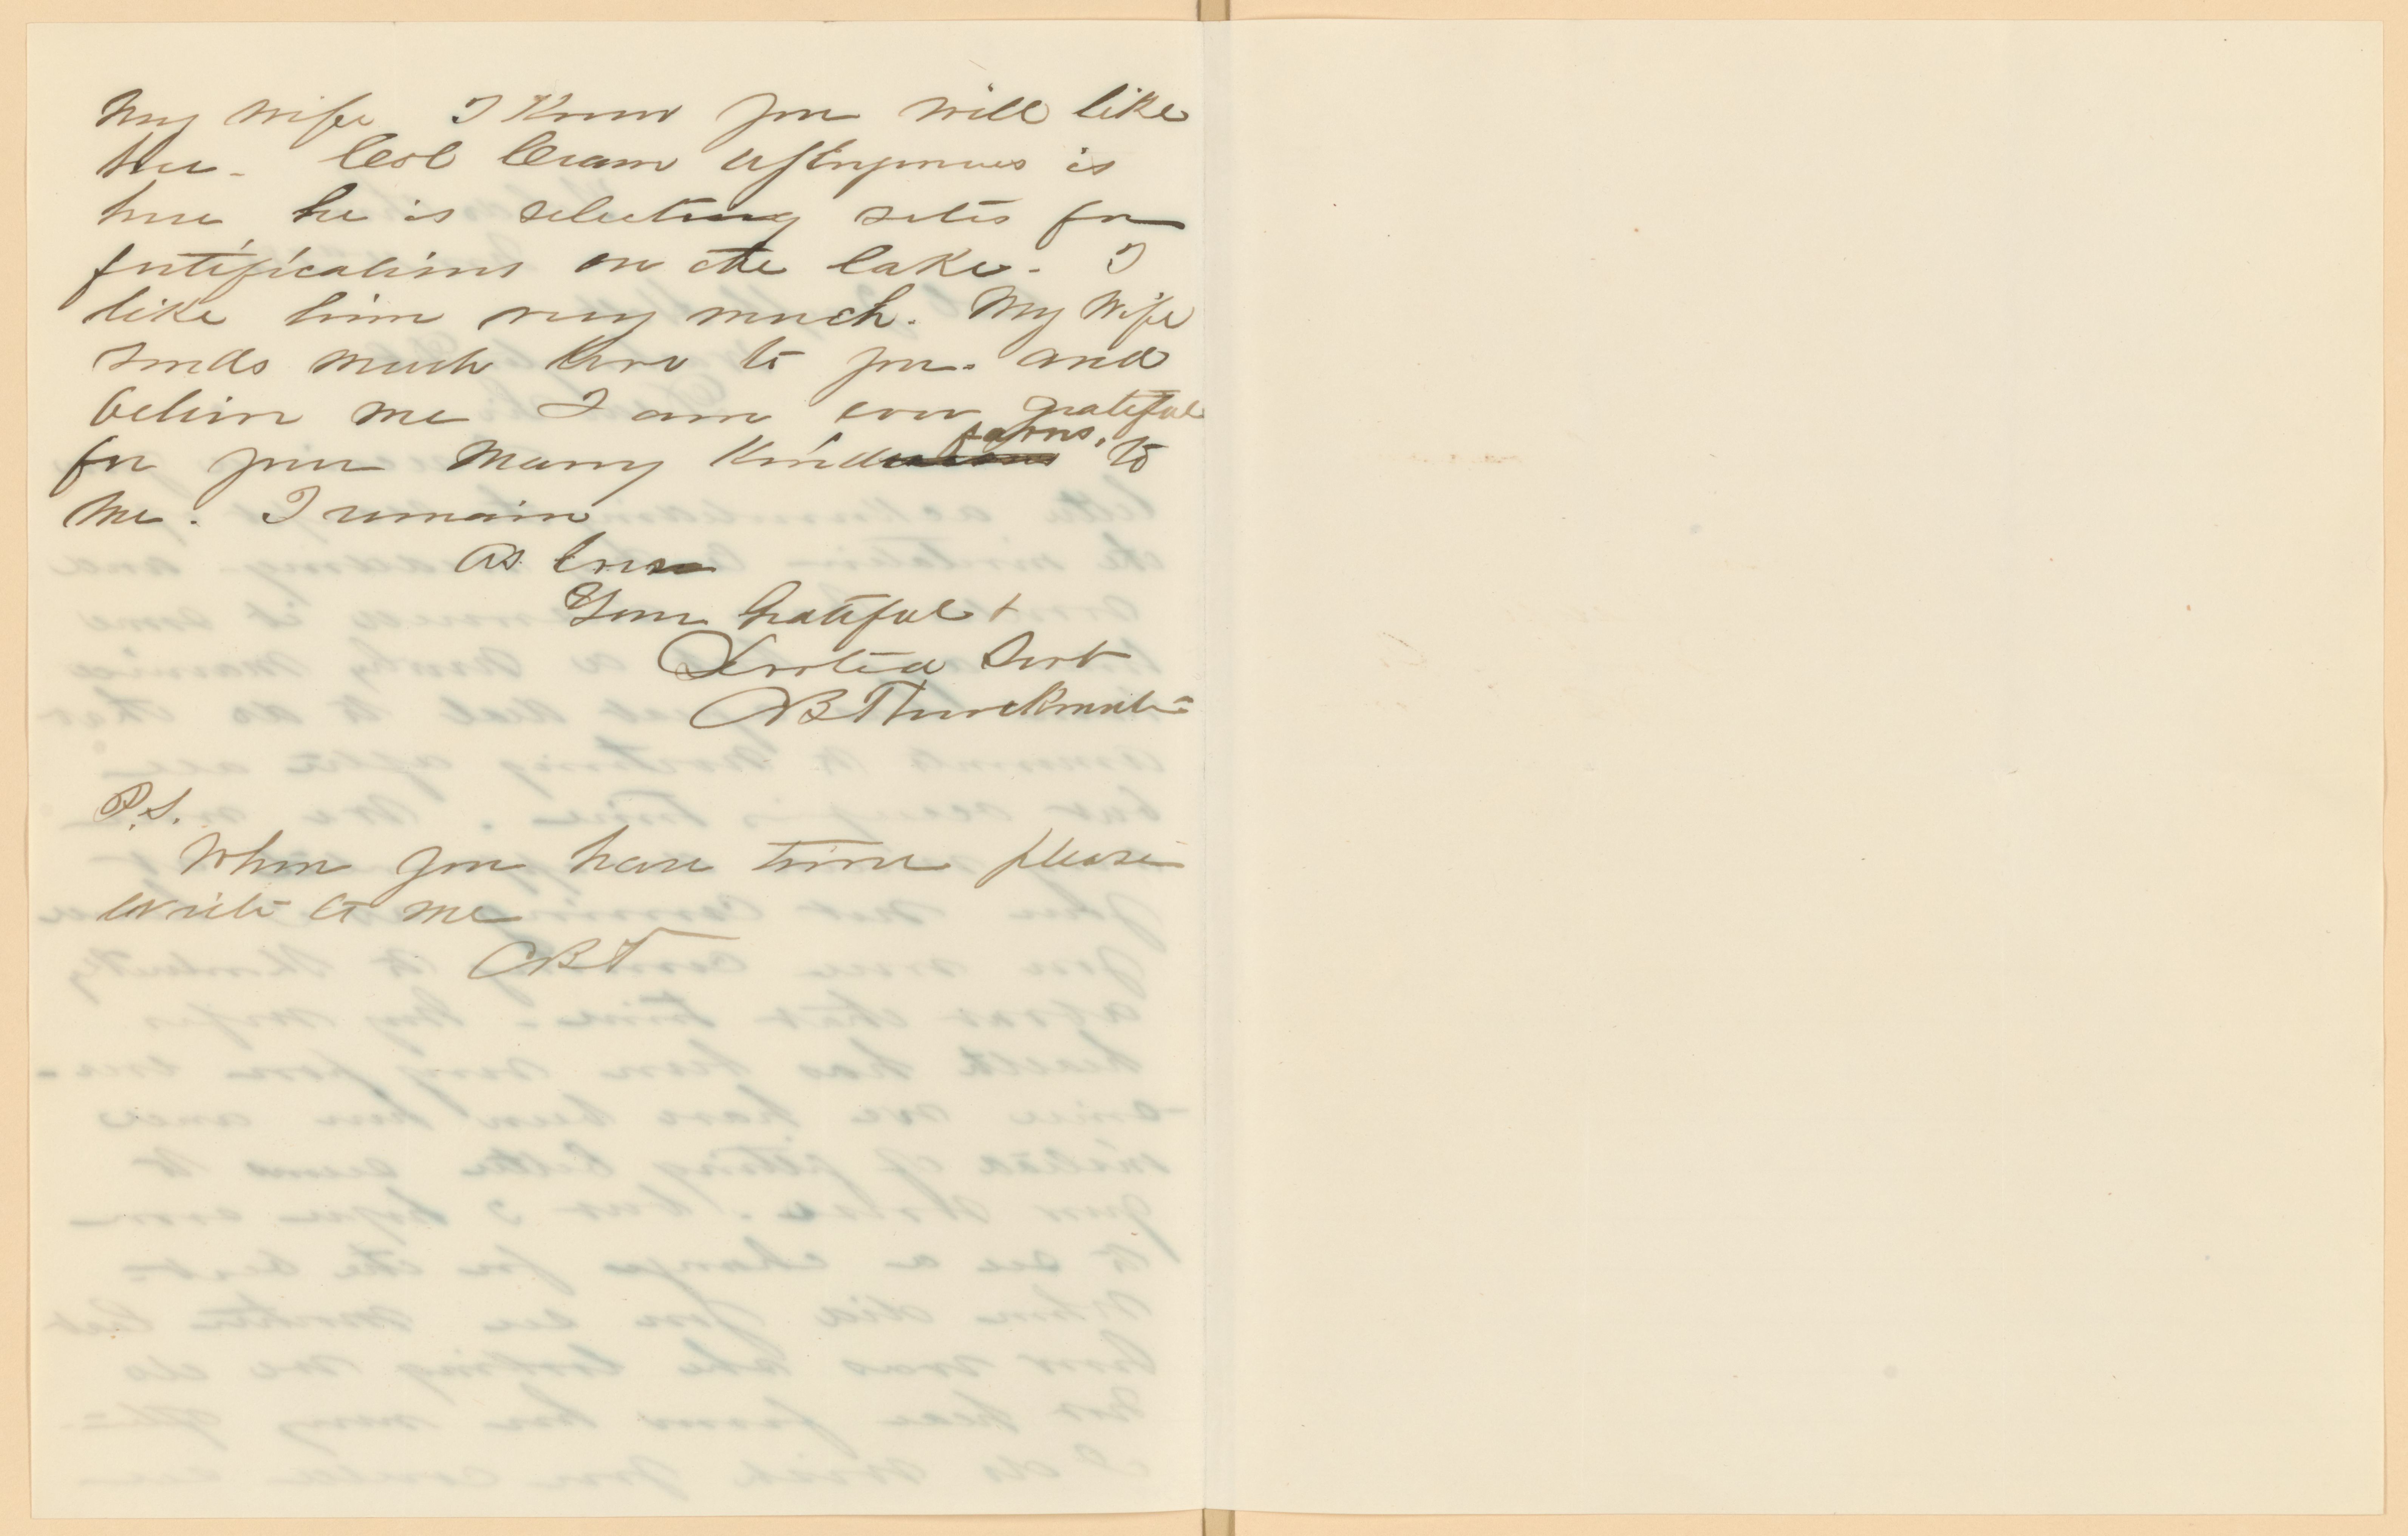 My wife I know you will like
her - Col Cram of Engineers is
here, he is selecting sites for
fortifications on the lake. I
like him very much. My Wife
sends much love to you. and
believe me I am ever grateful
for your many kind favors, to
me. I remain
As Ever
Your Grateful &
Devoted Servt
CB Throckmorton
P.S.
When you have time please
write to me
CBT